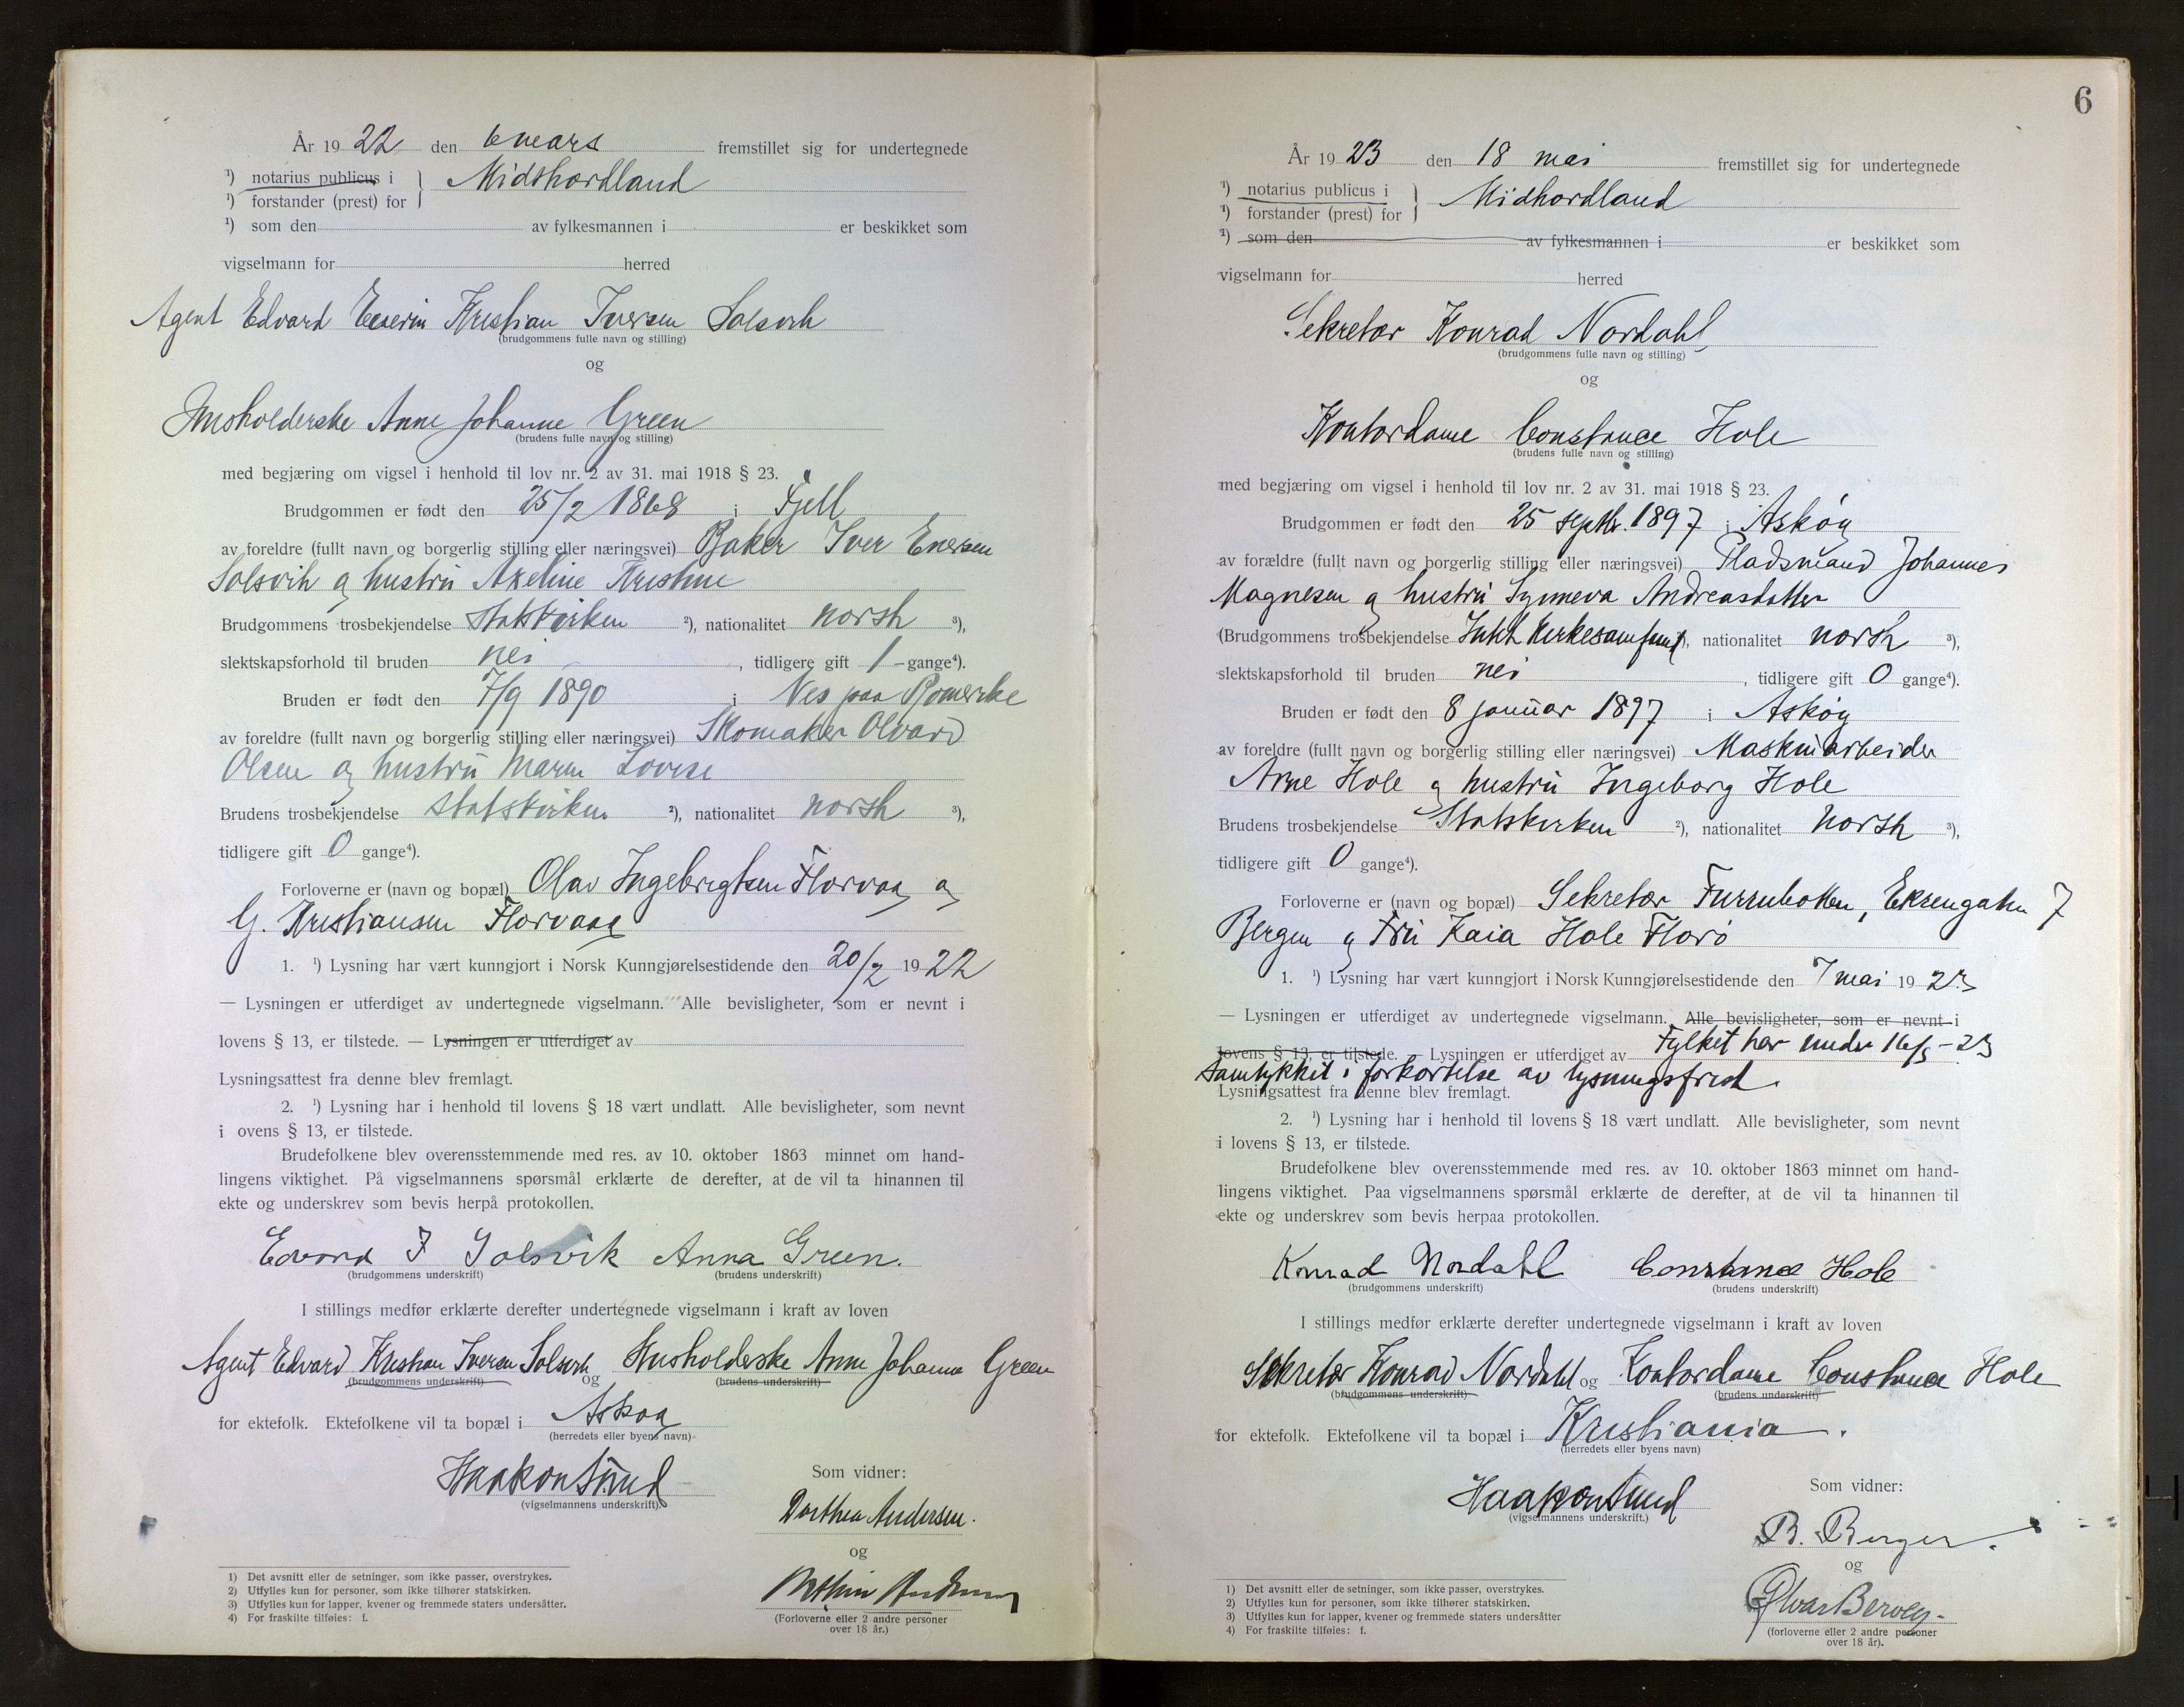 År 1922 den 6 mars fremstillet sig for undertegnede
¹) notarius publicus i
Midthordland
¹) forstander (prest) for
¹) som den av fylkesmannen i er beskikket som
vigselmann for herred
Agent Edvard Kristian Iversen Solsvik
(brudgommens fulle navn og stilling)
og
Husholderske Anne Johanne Green
(brudens fulle navn og stilling)
med begjæring om vigsel i henhold til lov nr. 2 av 31. mai 1918 § 23.
Brudgommen er født den 25/2 1868 i Fjell
av foreldre (fullt navn og borgerlig stilling eller næringsvei) Baker Iver Enersen
Solsvik og hustru Axeline Kristine
Brudgommens trosbekjendelse statskirken ²), nationalitet norsk ³),
slektskapsforhold til bruden nei , tidligere gift 1 - gange⁴).
Bruden er født den 7/9 1890 i Nes paa Romerike
av foreldre (fullt navn og borgerlig stilling eller næringsvei) Skomaker Olvard
Olsen og hustru Maren Lovise
Brudens trosbekjendelse statskirken ²), nationalitet norsk ³),
tidligere gift 0 gange⁴).
Forloverne er (navn og bopæl) Olav Ingebrigtsen Florvaag og
G. Kristiansen Florvaag
1. ¹) Lysning har vært kunngjort i Norsk Kunngjørelsestidende den 20/2 1922
— Lysningen er utferdiget av undertegnede vigselmann. Alle bevisligheter, som er nevnt i
lovens § 13, er tilstede. — Lysningen er utferdiget av
Lysningsattest fra denne blev fremlagt.
2. ¹) Lysning har i henhold til lovens § 18 vært undlatt. Alle bevisligheter, som nevnt
i ovens § 13, er tilstede.
Brudefolkene blev overensstemmende med res. av 10. oktober 1863 minnet om hand-
lingens viktighet. På vigselmannens spørsmål erklærte de derefter, at de vil ta hinannen til
ekte og underskrev som bevis herpå protokollen.
Edvard I Solsvik Anna Green.
(brudgommens underskrift) (brudens underskrift)
I stillings medfør erklærte derefter undertegnede vigselmann i kraft av loven
Agent Edvard Kristian Iversen Solsvik Husholderske Anne Johanne Green
(brudgommens underskrift) og (brudens underskrift)
for ektefolk. Ektefolkene vil ta bopæl i Askøy
(herredets eller byens navn)
Haakon Sund
(vigselmannens underskrift).
Som vidner:
Dorthea Andersen.
og
(Forloverne eller 2 andre personer
over 18 år.)
1) Det avsnitt eller de setninger, som ikke passer, overstrykes.
2) Utfylles kun for personer, som ikke tilhører statskirken.
3) Utfylles kun for lapper, kvener og fremmede staters undersåtter.
4) For fraskilte tilføies: f.
6
År 1923 den 18 mai fremstillet sig for undertegnede
¹) notarius publicus i
Midhordland
¹) forstander (prest) for
¹) som den av fylkesmannen i er beskikket som
vigselmann for herred
Sekretær Konrad Nordahl
(brudgommens fulle navn og stilling)
og
Kontordame Constance Hole
(brudens fulle navn og stilling)
med begjæring om vigsel i henhold til lov nr. 2 av 31. mai 1918 § 23.
Brudgommen er født den 25 septbr. 1897 i Askøy
av forældre (fullt navn og borgerlig stilling eller næringsvei) Pladsmand Johannes
Magnesen og hustru Synneva Andreasdatter
(Brudgommens trosbekjendelse Intet Kirkesamfund ²), nationalitet norsk ³),
slektskapsforhold til bruden nei , tidligere gift 0 gange⁴).
Bruden er født den 8 januar 1897 i Askøy
av foreldre (fullt navn og borgerlig stilling eller næringsvei) Maskinarbeider
Arne Hole og hustru Ingeborg Hole
Brudens trosbekjendelse Statskirken ²), nationalitet norsk ³),
tidligere gift 0 gange⁴).
Forloverne er (navn og bopæl) Sekretær Furubotten, Ekrengaten 7
Bergen og Fru Kaia Hole Florø
1. ¹) Lysning har vært kunngjort i Norsk Kunngjørelsestidende den 7 mai 1923
— Lysningen er utferdiget av undertegnede vigselmann. Alle bevisligheter, som er nevnt i
lovens § 13, er tilstede. — Lysningen er utferdiget av Fylket har under 16/5 - 23
samtykket i forkortelse av lysningsfrist.
Lysningsattest fra denne blev fremlagt.
2. ¹) Lysning har i henhold til lovens § 18 vært undlatt. Alle bevisligheter, som nevnt
i lovens § 13, er tilstede.
Brudefolkene blev overensstemmende med res. av 10. oktober 1863 minnet om hand-
lingens viktighet. Paa vigselmannens spørsmål erklærte de derefter, at de vil ta hinannen til
ekte og underskrev som bevis herpaa protokollen.
Konrad Nordahl Constance Hole
(brudgommens underskrift) (brudens underskrift)
I stillings medfør erklærte derefter undertegnede vigselmann i kraft av loven
Sekretær Konrad Nordahl og Kontordame Constance Hole
(brudgommens underskrift) (brudens underskrift)
for ektefolk. Ektefolkene vil ta bopæl i Kristiania.
(herredets eller byens navn)
Haakon Sund
(vigselmannens underskrift.)
Som vidner:
B. Berger.
og
(forloverne eller 2 andre personer
over 18 år).
1) Det avsnitt eller de setninger, som ikke passer, overstrykes.
2) Utfylles kun for personer, som ikke tilhører statskirken.
3) Utfylles kun for lapper, kvener og fremmede staters undersåtter
4) For fraskilte tilføies: f.